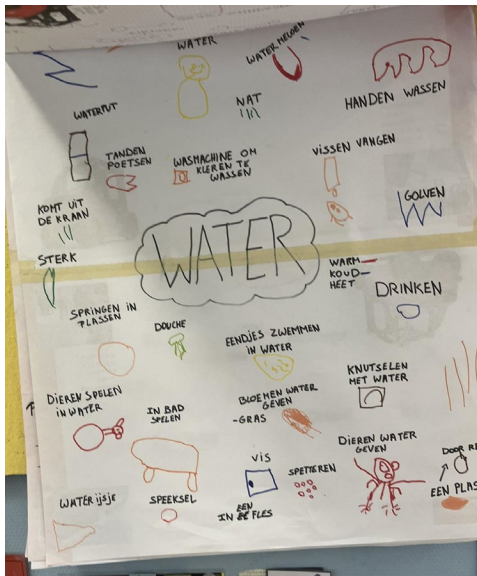 WATER
WATERMELOEN
HANDEN WASSEN
NAT
WATERPUT
TANDEN
POETSEN
WASMACHINE OM
KLEREN TE
WASSEN
VISSEN VANGEN
KOMT UIT
DE KRAAN
GOLVEN
WATER
STERK
WARM
KOUD
HEET
DRINKEN
SPRINGEN IN
PLASSEN
DOUCHE
EENDJES ZWEMMEN
IN WATER
KNUTSELEN
MET WATER
DIEREN SPELEN
IN WATER
IN BAD
SPELEN
BLOEMEN WATER
GEVEN
-GRAS
DIEREN WATER
GEVEN
VIS
SPETTEREN
DOOR
EEN PLAS
WATERijsje
SPEEKSEL
EEN
IN FLES